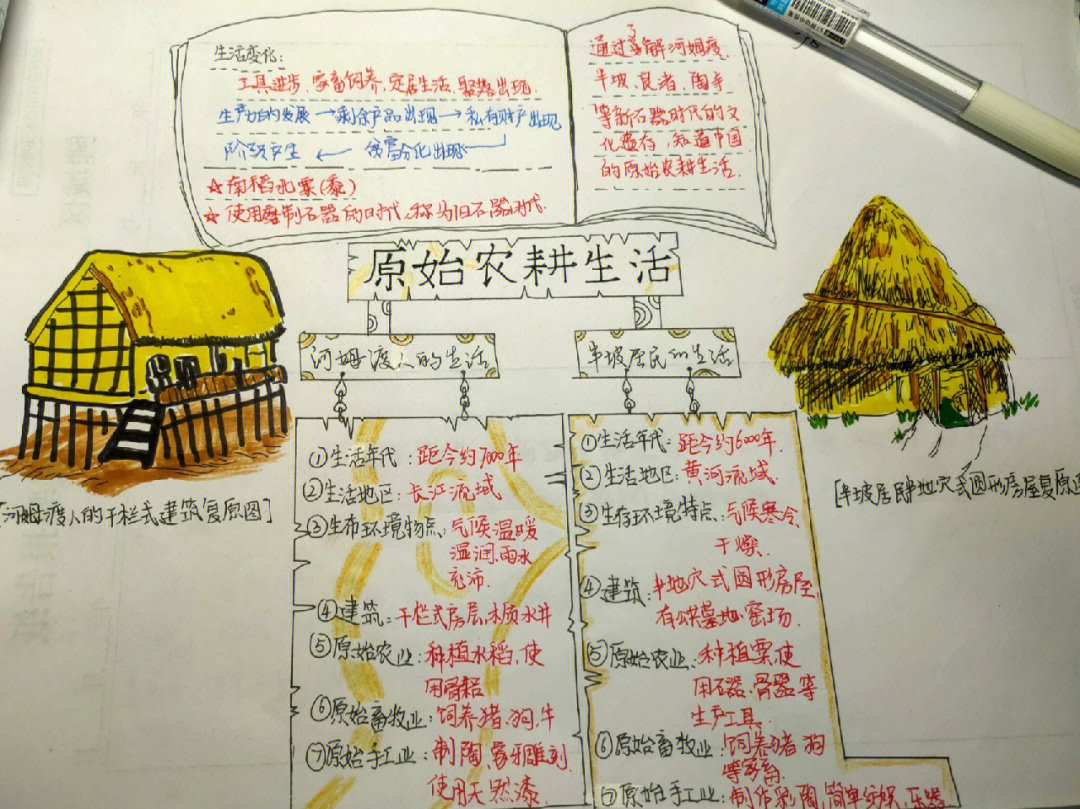 生活变化:
工具进步、家畜饲养、定居生活、聚落出现.
生产力的发展→剩余产品出现→私有财产出现
阶级产生 ← 贫富分化出现
☆南稻北粟(黍)
☆使用磨制石器的时代,称为旧石器时代.
通过了解河姆渡、
半坡、良渚、陶寺
等新石器时代的文
化遗存,知道中国
的原始农耕生活.
原始农耕生活
河姆渡人的生活
①生活年代:距今约7000年
②生活地区:长江流域
③生存环境特点:气候温暖
湿润、雨水
充沛.
④建筑:干栏式房屋,木质水井
⑤原始农业:种植水稻,使
用骨耜
⑥原始畜牧业:饲养猪、狗、牛
⑦原始手工业:制陶、象牙雕刻.
使用天然漆.
半坡居民的生活
①生活年代:距今约6000年.
②生活地区:黄河流域.
③生存环境特点:气候寒冷、
干燥.
④建筑:半地穴式圆形房屋,
有公共墓地、窑场.
⑤原始农业:种植粟,使
用石器、骨器等
生产工具.
⑥原始畜牧业:饲养猪狗
等家畜.
⑦原始手工业:制作彩陶,简单纺织、乐器
[河姆渡人的干栏式建筑复原图]
[半坡居民半地穴式圆形房屋复原